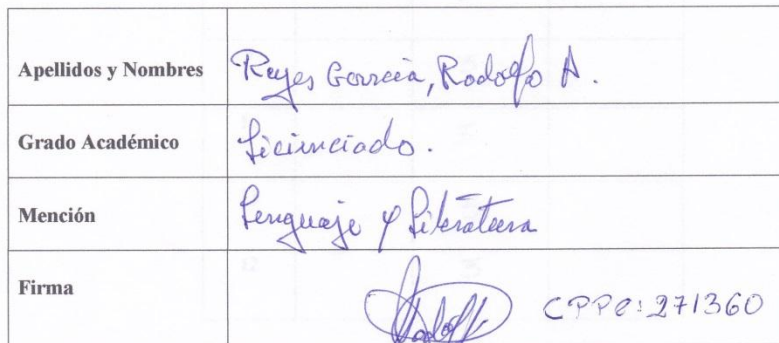 Apellidos y Nombres Reyes García, Rodolfo A.
Grado Académico Licienciado.
Mención Lenguaje y Literatura
Firma CPPe: 271360